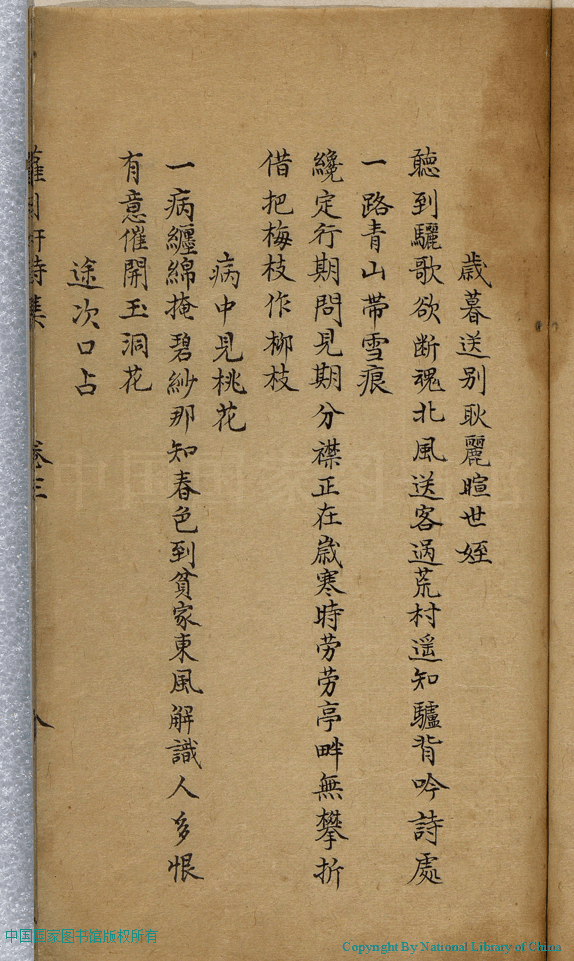 歲暮送别耿麗暄世姪
聽到驪歌欲断魂北風送客過荒村遥知驢背吟詩處
一路青山帶雪痕
纔定行期問見期分襟正在歲寒時劳劳亭畔無攀折
借把梅枝作柳枝
病中見桃花
一病纏綿掩碧紗那知春色到貧家東風解識人多恨
有意催開玉洞花
途次口占
詩集 卷三 八
中国国家图书馆版权所有
Copyright By National Library of China